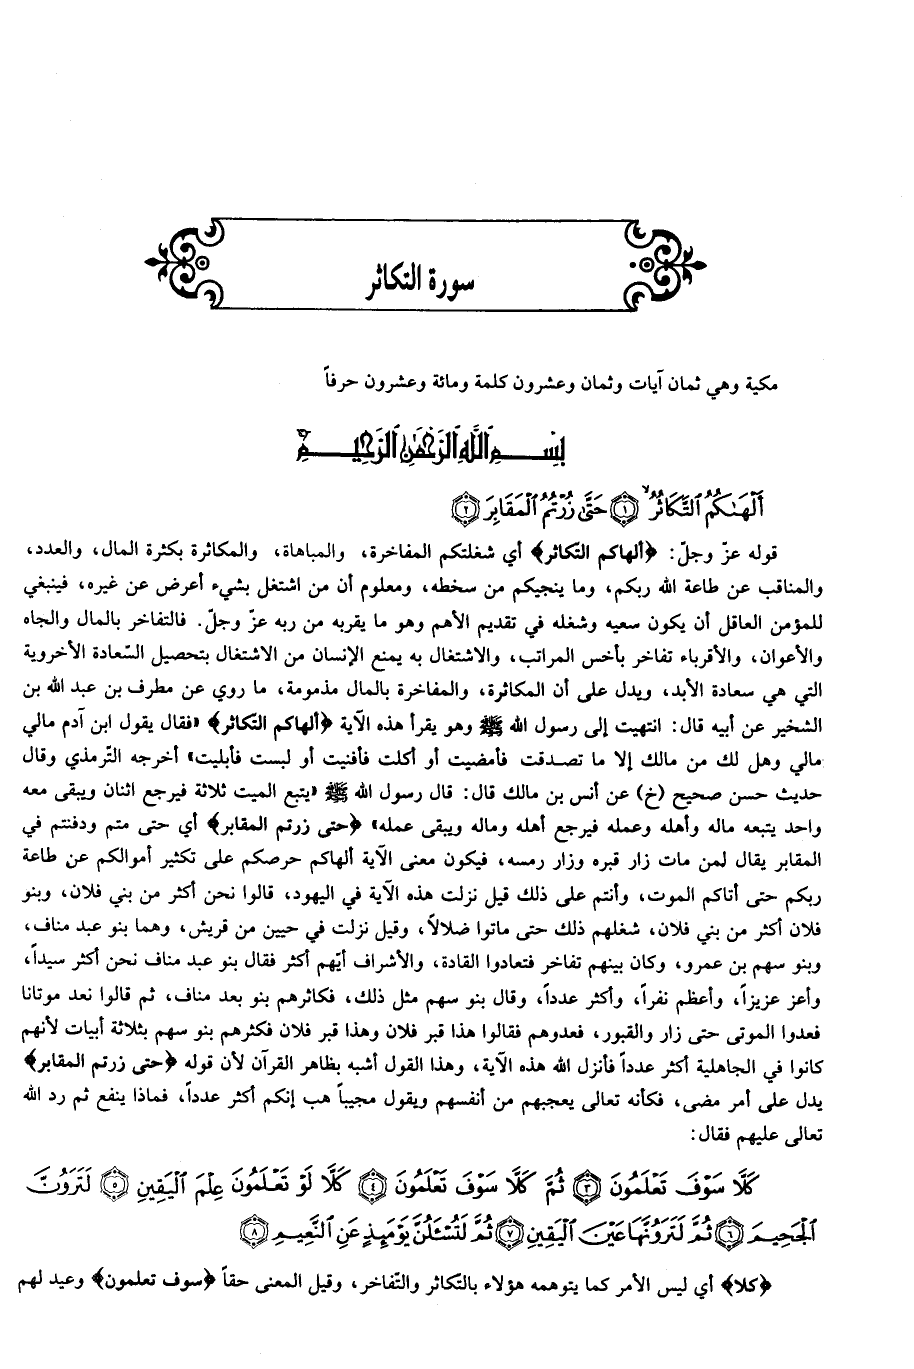 سورة التكاثر
مكية وهي ثمان آيات وثمان وعشرون كلمة ومائة وعشرون حرفاً
بِسْمِ اللَّهِ الرَّحْمَٰنِ الرَّحِيمِ
أَلْهَىٰكُمُ التَّكَاثُرُ ۙ ﴿١﴾ حَتَّىٰ زُرْتُمُ الْمَقَابِرَ ﴿٢﴾
قوله عزّ وجلّ: ﴿ألهاكم التكاثر﴾ أي شغلتكم المفاخرة، والمباهاة، والمكاثرة بكثرة المال، والعدد،
والمناقب عن طاعة الله ربكم، وما ينجيكم من سخطه، ومعلوم أن من اشتغل بشيء أعرض عن غيره، فينبغي
للمؤمن العاقل أن يكون سعيه وشغله في تقديم الأهم وهو ما يقربه من ربه عزّ وجلّ. فالتفاخر بالمال والجاه
والأعوان، والأقرباء تفاخر بأخس المراتب، والاشتغال به يمنع الإنسان من الاشتغال بتحصيل السّعادة الأخروية
التي هي سعادة الأبد، ويدل على أن المكاثرة، والمفاخرة بالمال مذمومة، ما روي عن مطرف بن عبد الله بن
الشخير عن أبيه قال: انتهيت إلى رسول الله ﷺ وهو يقرأ هذه الآية ﴿ألهاكم التّكاثر﴾ «فقال يقول ابن آدم مالي
مالي وهل لك من مالك إلا ما تصدقت فأمضيت أو أكلت فأفنيت أو لبست فأبليت» أخرجه التّرمذي وقال
حديث حسن صحيح (خ) عن أنس بن مالك قال: قال رسول الله ﷺ «يتبع الميت ثلاثة فيرجع اثنان ويبقى معه
واحد يتبعه ماله وأهله وعمله فيرجع أهله وماله ويبقى عمله» ﴿حتى زرتم المقابر﴾ أي حتى متم ودفنتم في
المقابر يقال لمن مات زار قبره وزار رمسه، فيكون معنى الآية ألهاكم حرصكم على تكثير أموالكم عن طاعة
ربكم حتى أتاكم الموت، وأنتم على ذلك قيل نزلت هذه الآية في اليهود، قالوا نحن أكثر من بني فلان، وبنو
فلان أكثر من بني فلان، شغلهم ذلك حتى ماتوا ضلالاً، وقيل نزلت في حيين من قريش، وهما بنو عبد مناف،
وبنو سهم بن عمرو، وكان بينهم تفاخر فتعادوا القادة، والأشراف أيّهم أكثر فقال بنو عبد مناف نحن أكثر سيداً،
وأعز عزيزاً، وأعظم نفراً، وأكثر عدداً، وقال بنو سهم مثل ذلك، فكاثرهم بنو بعد مناف، ثم قالوا نعد موتانا
فعدوا الموتى حتى زار والقبور، فعدوهم فقالوا هذا قبر فلان وهذا قبر فلان فكثرهم بنو سهم بثلاثة أبيات لأنهم
كانوا في الجاهلية أكثر عدداً فأنزل الله هذه الآية، وهذا القول أشبه بظاهر القرآن لأن قوله ﴿حتى زرتم المقابر﴾
يدل على أمر مضى، فكأنه تعالى يعجبهم من أنفسهم ويقول مجيباً هب إنكم أكثر عدداً، فماذا ينفع ثم رد الله
تعالى عليهم فقال:
كَلَّا سَوْفَ تَعْلَمُونَ ﴿٣﴾ ثُمَّ كَلَّا سَوْفَ تَعْلَمُونَ ﴿٤﴾ كَلَّا لَوْ تَعْلَمُونَ عِلْمَ الْيَقِينِ ﴿٥﴾ لَتَرَوُنَّ
الْجَحِيمَ ﴿٦﴾ ثُمَّ لَتَرَوُنَّهَا عَيْنَ الْيَقِينِ ﴿٧﴾ ثُمَّ لَتُسْـَٔلُنَّ يَوْمَئِذٍ عَنِ النَّعِيمِ ﴿٨﴾
﴿كلا﴾ أي ليس الأمر كما يتوهمه هؤلاء بالتّكاثر والتّفاخر، وقيل المعنى حقاً ﴿سوف تعلمون﴾ وعيد لهم